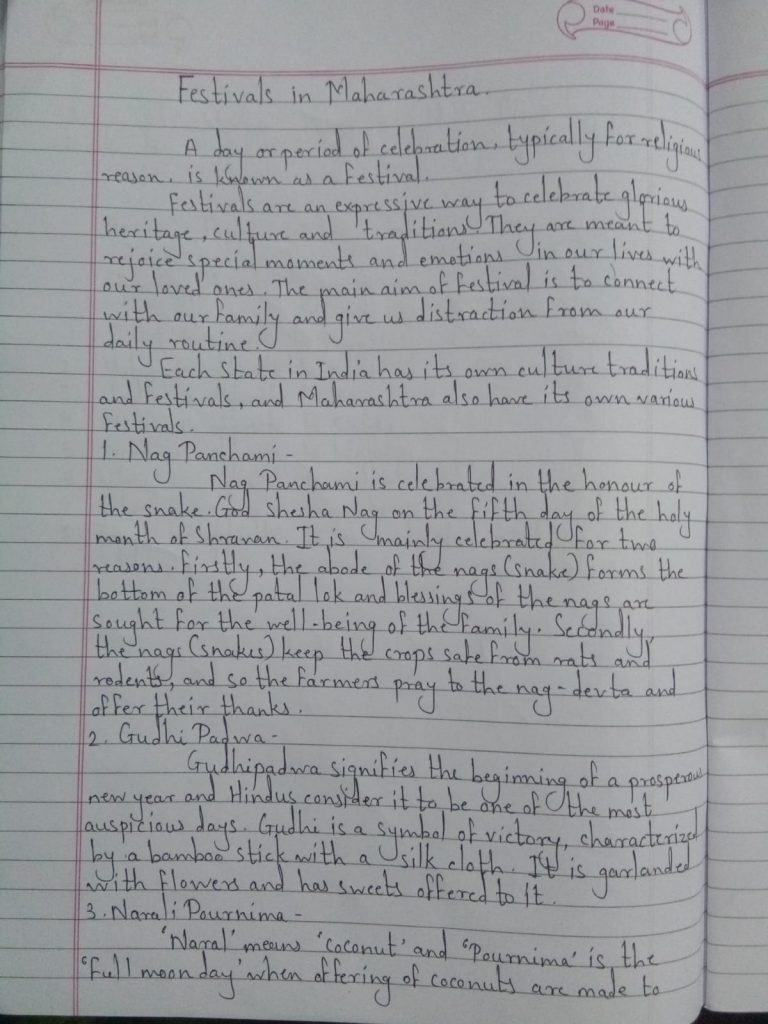 Date
Page
Festivals in Maharashtra.
A day or period of celebration, typically for religious
reason. is known as a festival.
Festivals are an expressive way to celebrate glorious
heritage, culture and traditions. They are meant to
rejoice special moments and emotions in our lives with
our loved ones. The main aim of festival is to connect
with our family and give us distraction from our
daily routine.
Each State in India has its own culture traditions
and festivals, and Maharashtra also have its own various
festivals.
1. Nag Panchami -
Nag Panchami is celebrated in the honour of
the snake. God Shesha Nag on the fifth day of the holy
month of Shravan. It is mainly celebrated for two
reasons. firstly, the abode of the nags (snake) forms the
bottom of the patal lok and blessings of the nags are
sought for the well-being of the family. Secondly,
the nags (snakes) keep the crops safe from rats and
rodents, and so the farmers pray to the nag-devta and
offer their thanks.
2. Gudhi Padwa -
Gudhipadwa signifies the beginning of a prosperous
new year and Hindus consider it to be one of the most
auspicious days. Gudhi is a symbol of victory, characterized
by a bamboo stick with a silk cloth. It is garlanded
with flowers and has sweets offered to it.
3. Narali Pournima -
'Naral' means 'coconut' and 'Pournima' is the
'full moon day' when offering of coconuts are made to